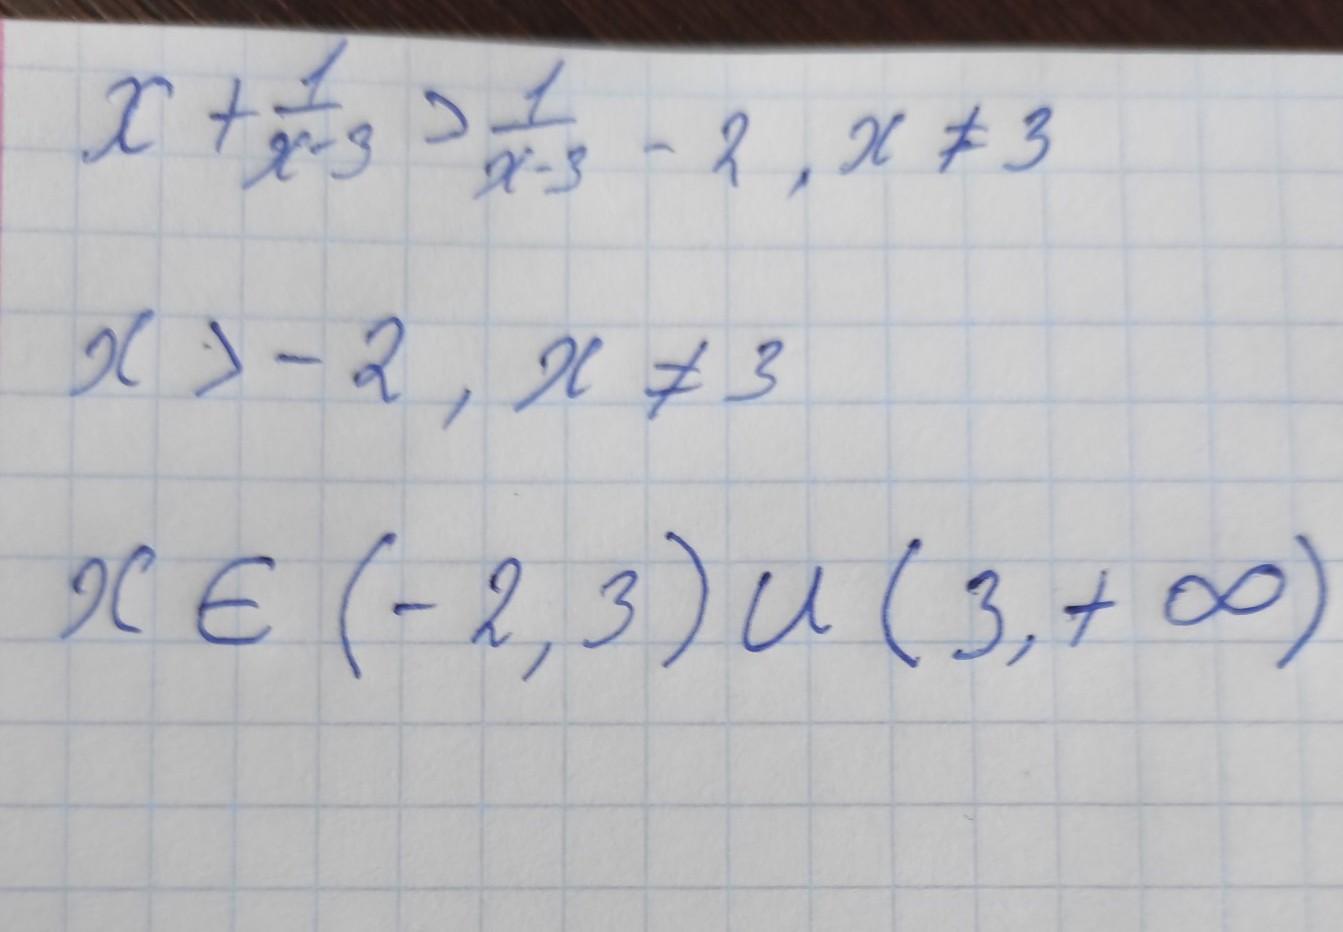 x + 1/(x-3) > 1/(x-3) - 2, x ≠ 3
x > -2, x ≠ 3
x ∈ (-2, 3) ∪ (3, +∞)